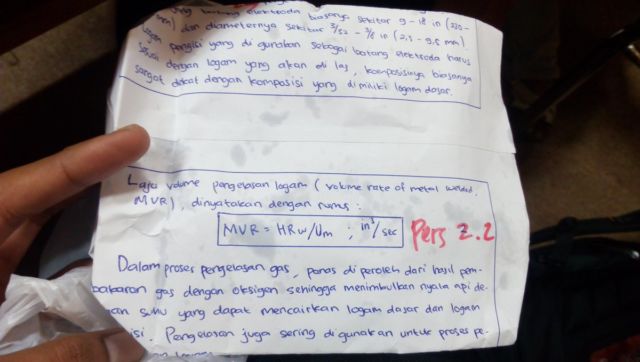 batang elektroda biasanya sekitar 9 - 18 in (230 -
mm) dan diameternya sekitar 3/32 - 3/8 in (2,3 - 9,5 mm)
pengisi yang di gunakan sebagai batang elektroda harus
sesuai dengan logam yang akan di las, komposisinya biasanya
sangat dekat dengan komposisi yang dimiliki logam dasar.
Laju volume pengelasan logam (volume rate of metal welded,
MVR), dinyatakan dengan rumus :
MVR = HRw/Um ; in³/sec Pers 2.2
Dalam proses pengelasan gas, panas di peroleh dari hasil pem-
bakaran gas dengan oksigen sehingga menimbulkan nyala api de-
an suhu yang dapat mencairkan logam dasar dan logam
isi. Pengelasan juga sering digunakan untuk proses pe-